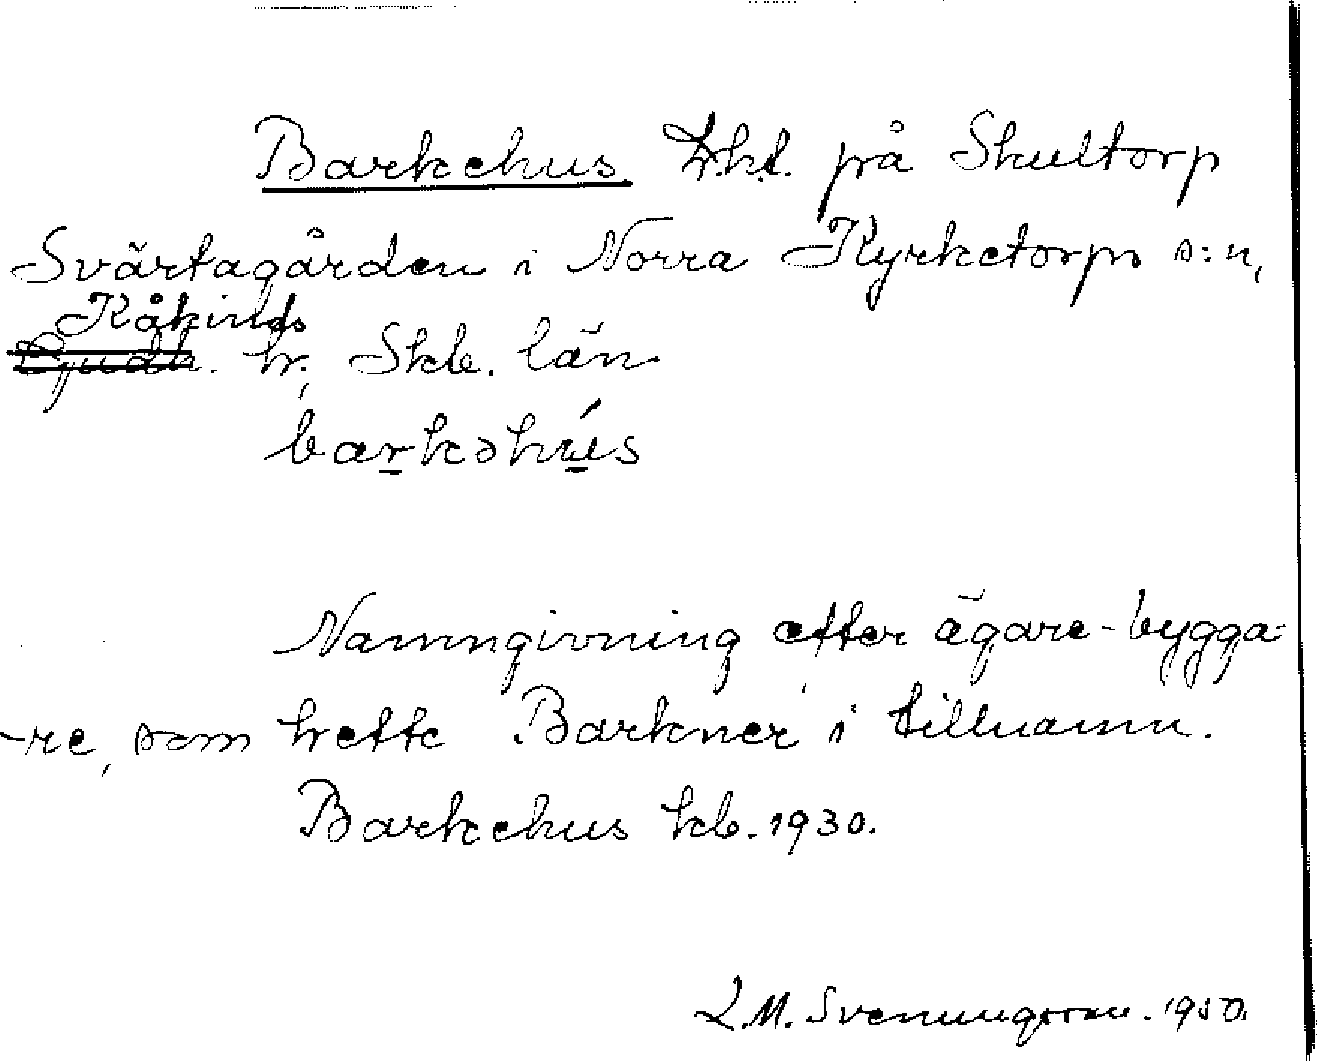 Barkehus Lht. på Skultorp
Svärtagården i Norra Kyrketorps s:n,
Kåkinds
hr, Skb. län
barkəhús
Namngivning efter ägare-bygga-
-re, som hette Barkner i tillnamn.
Barkehus kb. 1930.
L.M. Svenungsson. 1950.